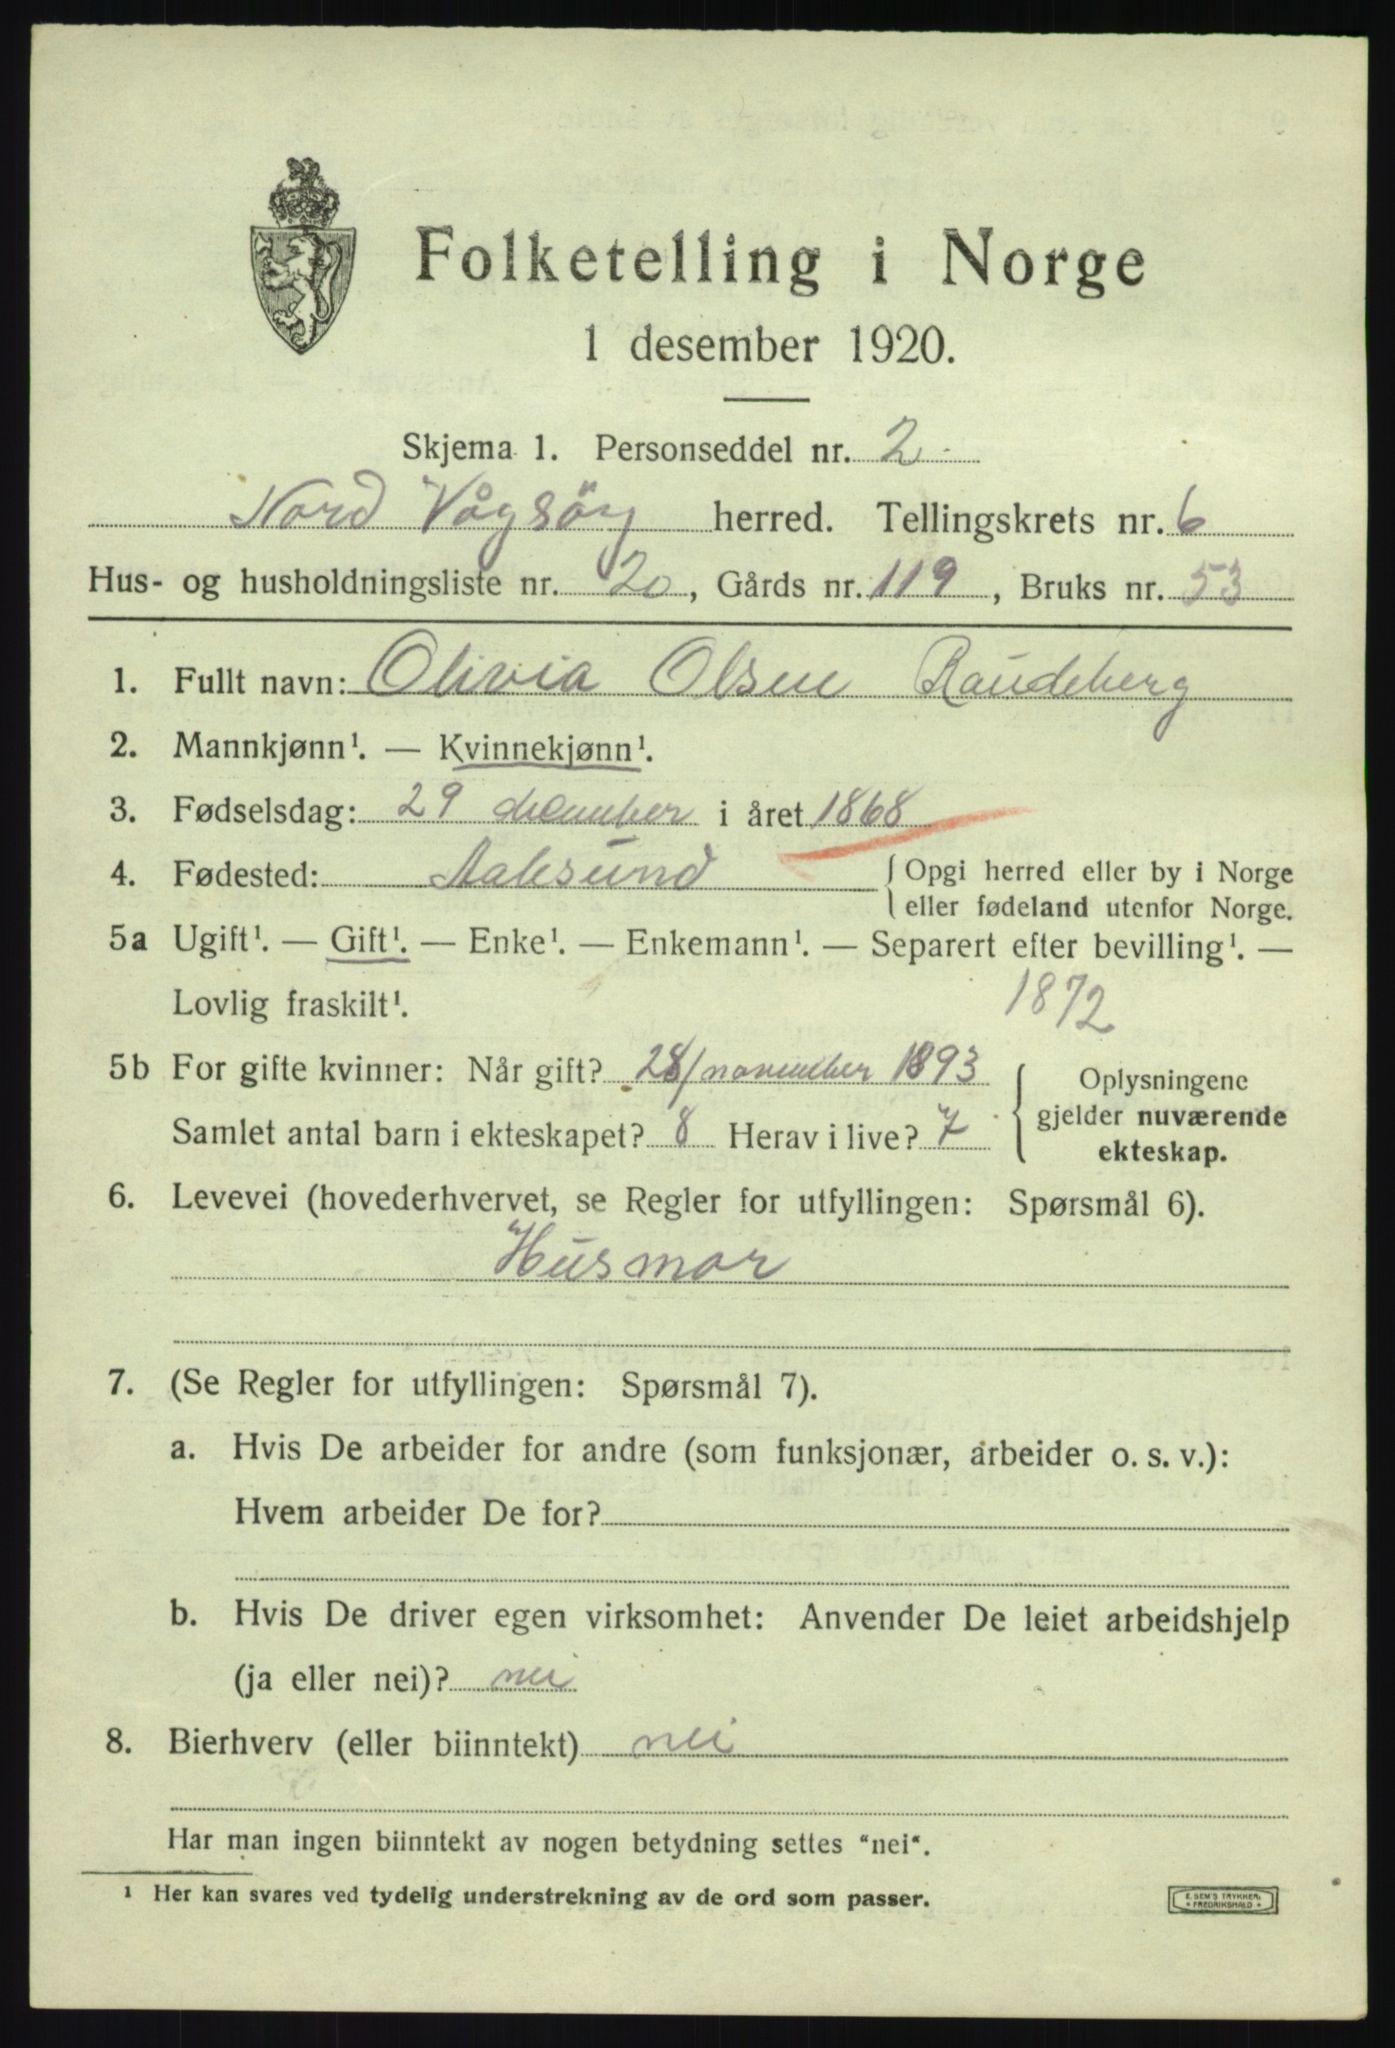 Folketelling i Norge
1 desember 1920.
Skjema 1. Personseddel nr. 2
Nord Vågsöy herred. Tellingskrets nr. 6
Hus- og husholdningsliste nr. 20, Gårds nr. 119, Bruks nr. 53
1. Fullt navn: Olivia Olsen Raudeberg
2. Mannkjønn¹. — Kvinnekjønn¹.
3. Fødselsdag: 29 december i året 1868
4. Fødested: Aalesund { Opgi herred eller by i Norge
eller fødeland utenfor Norge.
5a Ugift¹. — Gift¹. — Enke¹. — Enkemann¹. — Separert efter bevilling¹. —
Lovlig fraskilt¹. 1872
5b For gifte kvinner: Når gift? 28/november 1893
Samlet antal barn i ekteskapet? 8 Herav i live? 7
Oplysningene
gjelder nuværende
ekteskap.
6. Levevei (hovederhvervet, se Regler for utfyllingen: Spørsmål 6).
Husmor
7. (Se Regler for utfyllingen: Spørsmål 7).
a. Hvis De arbeider for andre (som funksjonær, arbeider o. s. v.):
Hvem arbeider De for?
b. Hvis De driver egen virksomhet: Anvender De leiet arbeidshjelp
(ja eller nei)? nei
8. Bierhverv (eller biinntekt) nei
Har man ingen biinntekt av nogen betydning settes "nei".
¹ Her kan svares ved tydelig understrekning av de ord som passer.
E. SEM'S TRYKKERI
FREDRIKSHALD